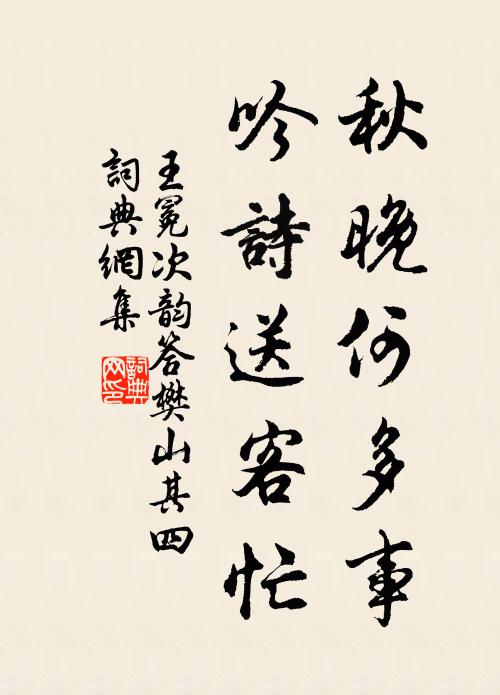 秋晚何多事
吟詩送客忙
王冕次韵答樊山其四
詞典網集
詞典网印